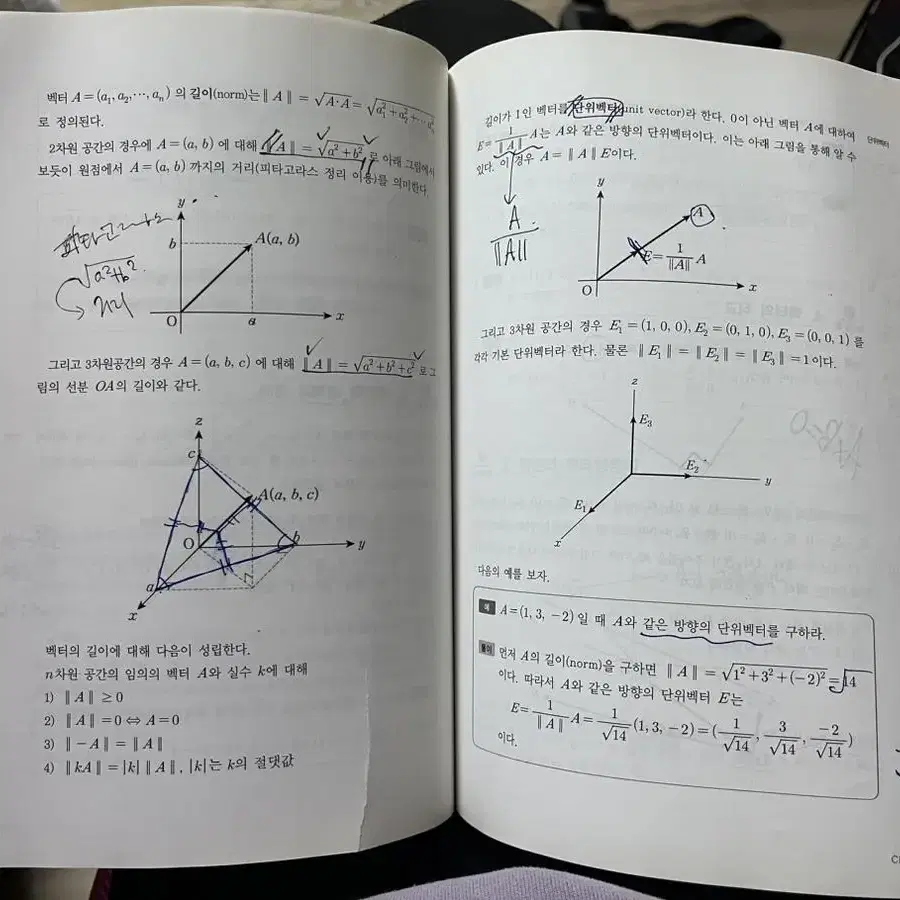 벡터 A = (a₁, a₂, ⋯, aₙ) 의 길이(norm)는 ‖A‖ = √(A·A) = √(a₁²+a₂²+⋯aₙ²)
로 정의된다.
2차원 공간의 경우에 A = (a, b) 에 대해 ‖A‖ = √(a²+b²) 로 아래 그림에서
보듯이 원점에서 A = (a, b) 까지의 거리(피타고라스 정리 이용)를 의미한다.
피타고라스
√(a²+b²)
거리
y
b
A(a, b)
O
a
x
그리고 3차원공간의 경우 A = (a, b, c) 에 대해 ‖A‖ = √(a²+b²+c²) 로 그
림의 선분 OA의 길이와 같다.
z
c
A(a, b, c)
O
b
y
a
x
벡터의 길이에 대해 다음이 성립한다.
n차원 공간의 임의의 벡터 A와 실수 k에 대해
1) ‖A‖ ≥ 0
2) ‖A‖ = 0 ⇔ A = 0
3) ‖−A‖ = ‖A‖
4) ‖kA‖ = |k| ‖A‖, |k|는 k의 절댓값
길이가 1인 벡터를 단위벡터(unit vector)라 한다. 0이 아닌 벡터 A에 대하여
단위벡터
E = 1/‖A‖ A는 A와 같은 방향의 단위벡터이다. 이는 아래 그림을 통해 알 수
있다. 이 경우 A = ‖A‖E이다.
A/‖A‖
y
A
E = 1/‖A‖ A
O
x
그리고 3차원 공간의 경우 E₁ = (1, 0, 0), E₂ = (0, 1, 0), E₃ = (0, 0, 1) 를
각각 기본 단위벡터라 한다. 물론 ‖E₁‖ = ‖E₂‖ = ‖E₃‖ = 1이다.
z
E₃
E₂
y
E₁
x
다음의 예를 보자.
예 A = (1, 3, −2) 일 때 A와 같은 방향의 단위벡터를 구하라.
풀이 먼저 A의 길이(norm)을 구하면 ‖A‖ = √(1²+3²+(−2)²) = √14
이다. 따라서 A와 같은 방향의 단위벡터 E는
E = 1/‖A‖ A = 1/√14 (1, 3, −2) = (1/√14, 3/√14, −2/√14)
이다.